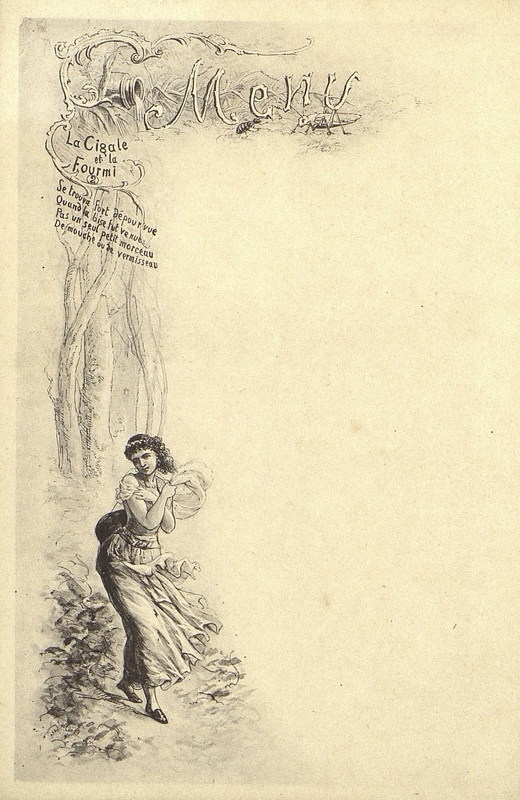 Menu
La Cigale
et la
Fourmi
2
Se trouva fort dépourvue
Quand la bise fut venue.
Pas un seul petit morceau
De mouche ou de vermisseau